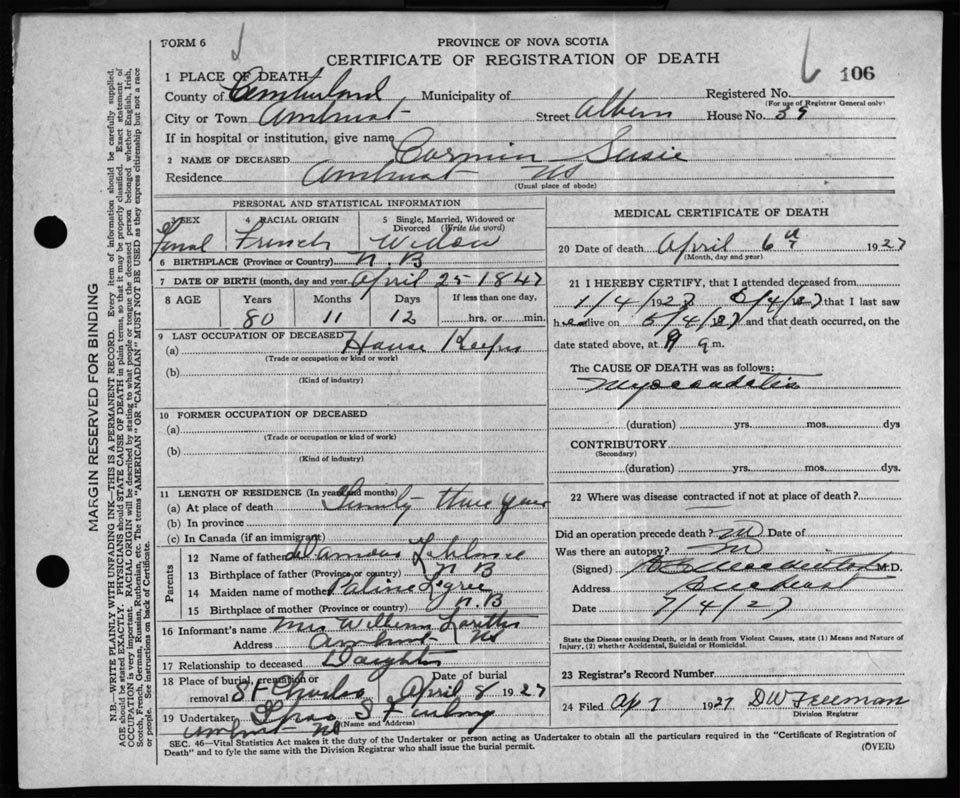 FORM 6
PROVINCE OF NOVA SCOTIA
CERTIFICATE OF REGISTRATION OF DEATH
106
1 PLACE OF DEATH
County of Cumberland Municipality of Registered No.
(For use of Registrar General only)
City or Town Amherst Street Albion House No. 39
If in hospital or institution, give name
2 NAME OF DECEASED Cormier Susie
Residence Amherst NS
(Usual place of abode)
PERSONAL AND STATISTICAL INFORMATION
3 SEX 4 RACIAL ORIGIN 5 Single, Married, Widowed or Divorced (Write the word)
Femal French Widow
6 BIRTHPLACE (Province or Country) N.B
7 DATE OF BIRTH (month, day and year) April 25 1847
8 AGE Years Months Days If less than one day,
80 11 12 hrs. or min.
9 LAST OCCUPATION OF DECEASED
(a) House Keeper
(Trade or occupation or kind or work)
(b)
(Kind of industry)
10 FORMER OCCUPATION OF DECEASED
(a)
(Trade or occupation or kind of work)
(b)
(Kind of industry)
11 LENGTH OF RESIDENCE (In years and months)
(a) At place of death Three Years
(b) In province
(c) In Canada (if an immigrant)
Parents
12 Name of father
13 Birthplace of father (Province or country) N B
14 Maiden name of mother
15 Birthplace of mother (Province or country) N.B
16 Informant's name Mrs William
Address Amherst NS
17 Relationship to deceased Daughter
18 Place of burial, cremation or removal St Charles Date of burial April 8 1927
19 Undertaker
(Name and Address)
Amherst NS
MEDICAL CERTIFICATE OF DEATH
20 Date of death April 6th 1927
(Month, day and year)
21 I HEREBY CERTIFY, that I attended deceased from
1/4/1927 5/4/27 that I last saw
her alive on 5/4/27 and that death occurred, on the
date stated above, at 9 a m.
The CAUSE OF DEATH was as follows:
Myocardatis
(duration) yrs. mos. dys
CONTRIBUTORY
(Secondary)
(duration) yrs. mos. dys.
22 Where was disease contracted if not at place of death?
Did an operation precede death? Date of
Was there an autopsy?
(Signed) M.D.
Address Amherst
Date 7/4/27
State the Disease causing Death, or in death from Violent Causes, state (1) Means and Nature of
Injury, (2) whether Accidental, Suicidal or Homicidal.
23 Registrar's Record Number
24 Filed Ap 7 1927 DW Freeman
Division Registrar
SEC. 46—Vital Statistics Act makes it the duty of the Undertaker or person acting as Undertaker to obtain all the particulars required in the "Certificate of Registration of
Death" and to fyle the same with the Division Registrar who shall issue the burial permit.
(OVER)
MARGIN RESERVED FOR BINDING
N.B.—WRITE PLAINLY WITH UNFADING INK—THIS IS A PERMANENT RECORD. Every item of information should be carefully supplied.
AGE should be stated EXACTLY. PHYSICIANS should STATE CAUSE OF DEATH in plain terms, so that it may be properly classified. Exact statement of
OCCUPATION is very important. RACIAL ORIGIN will be described by stating to what people or tongue the deceased person belonged whether English, Irish,
Scotch, French, German, Russian, Ruthenian, etc. The terms "AMERICAN" or "CANADIAN" MUST NOT BE USED as they express citizenship but not a race
or people. See instructions on back of Certificate.